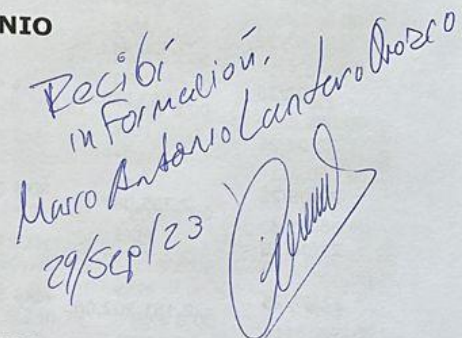 NIO
Recibí
información.
Marco Antonio Cantero Orozco
29/Sep/23